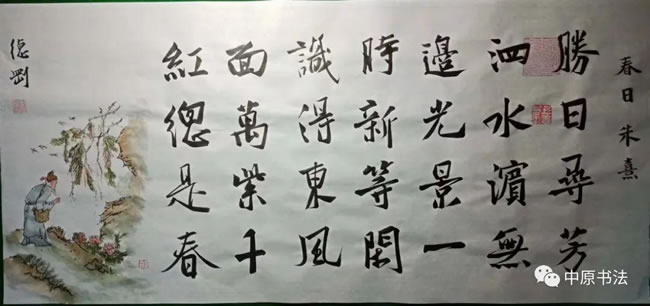 春日 朱熹
勝日尋芳
泗水濱無
邊光景一
時新等閑
識得東風
面萬紫千
紅總是春
德剛
中原书法